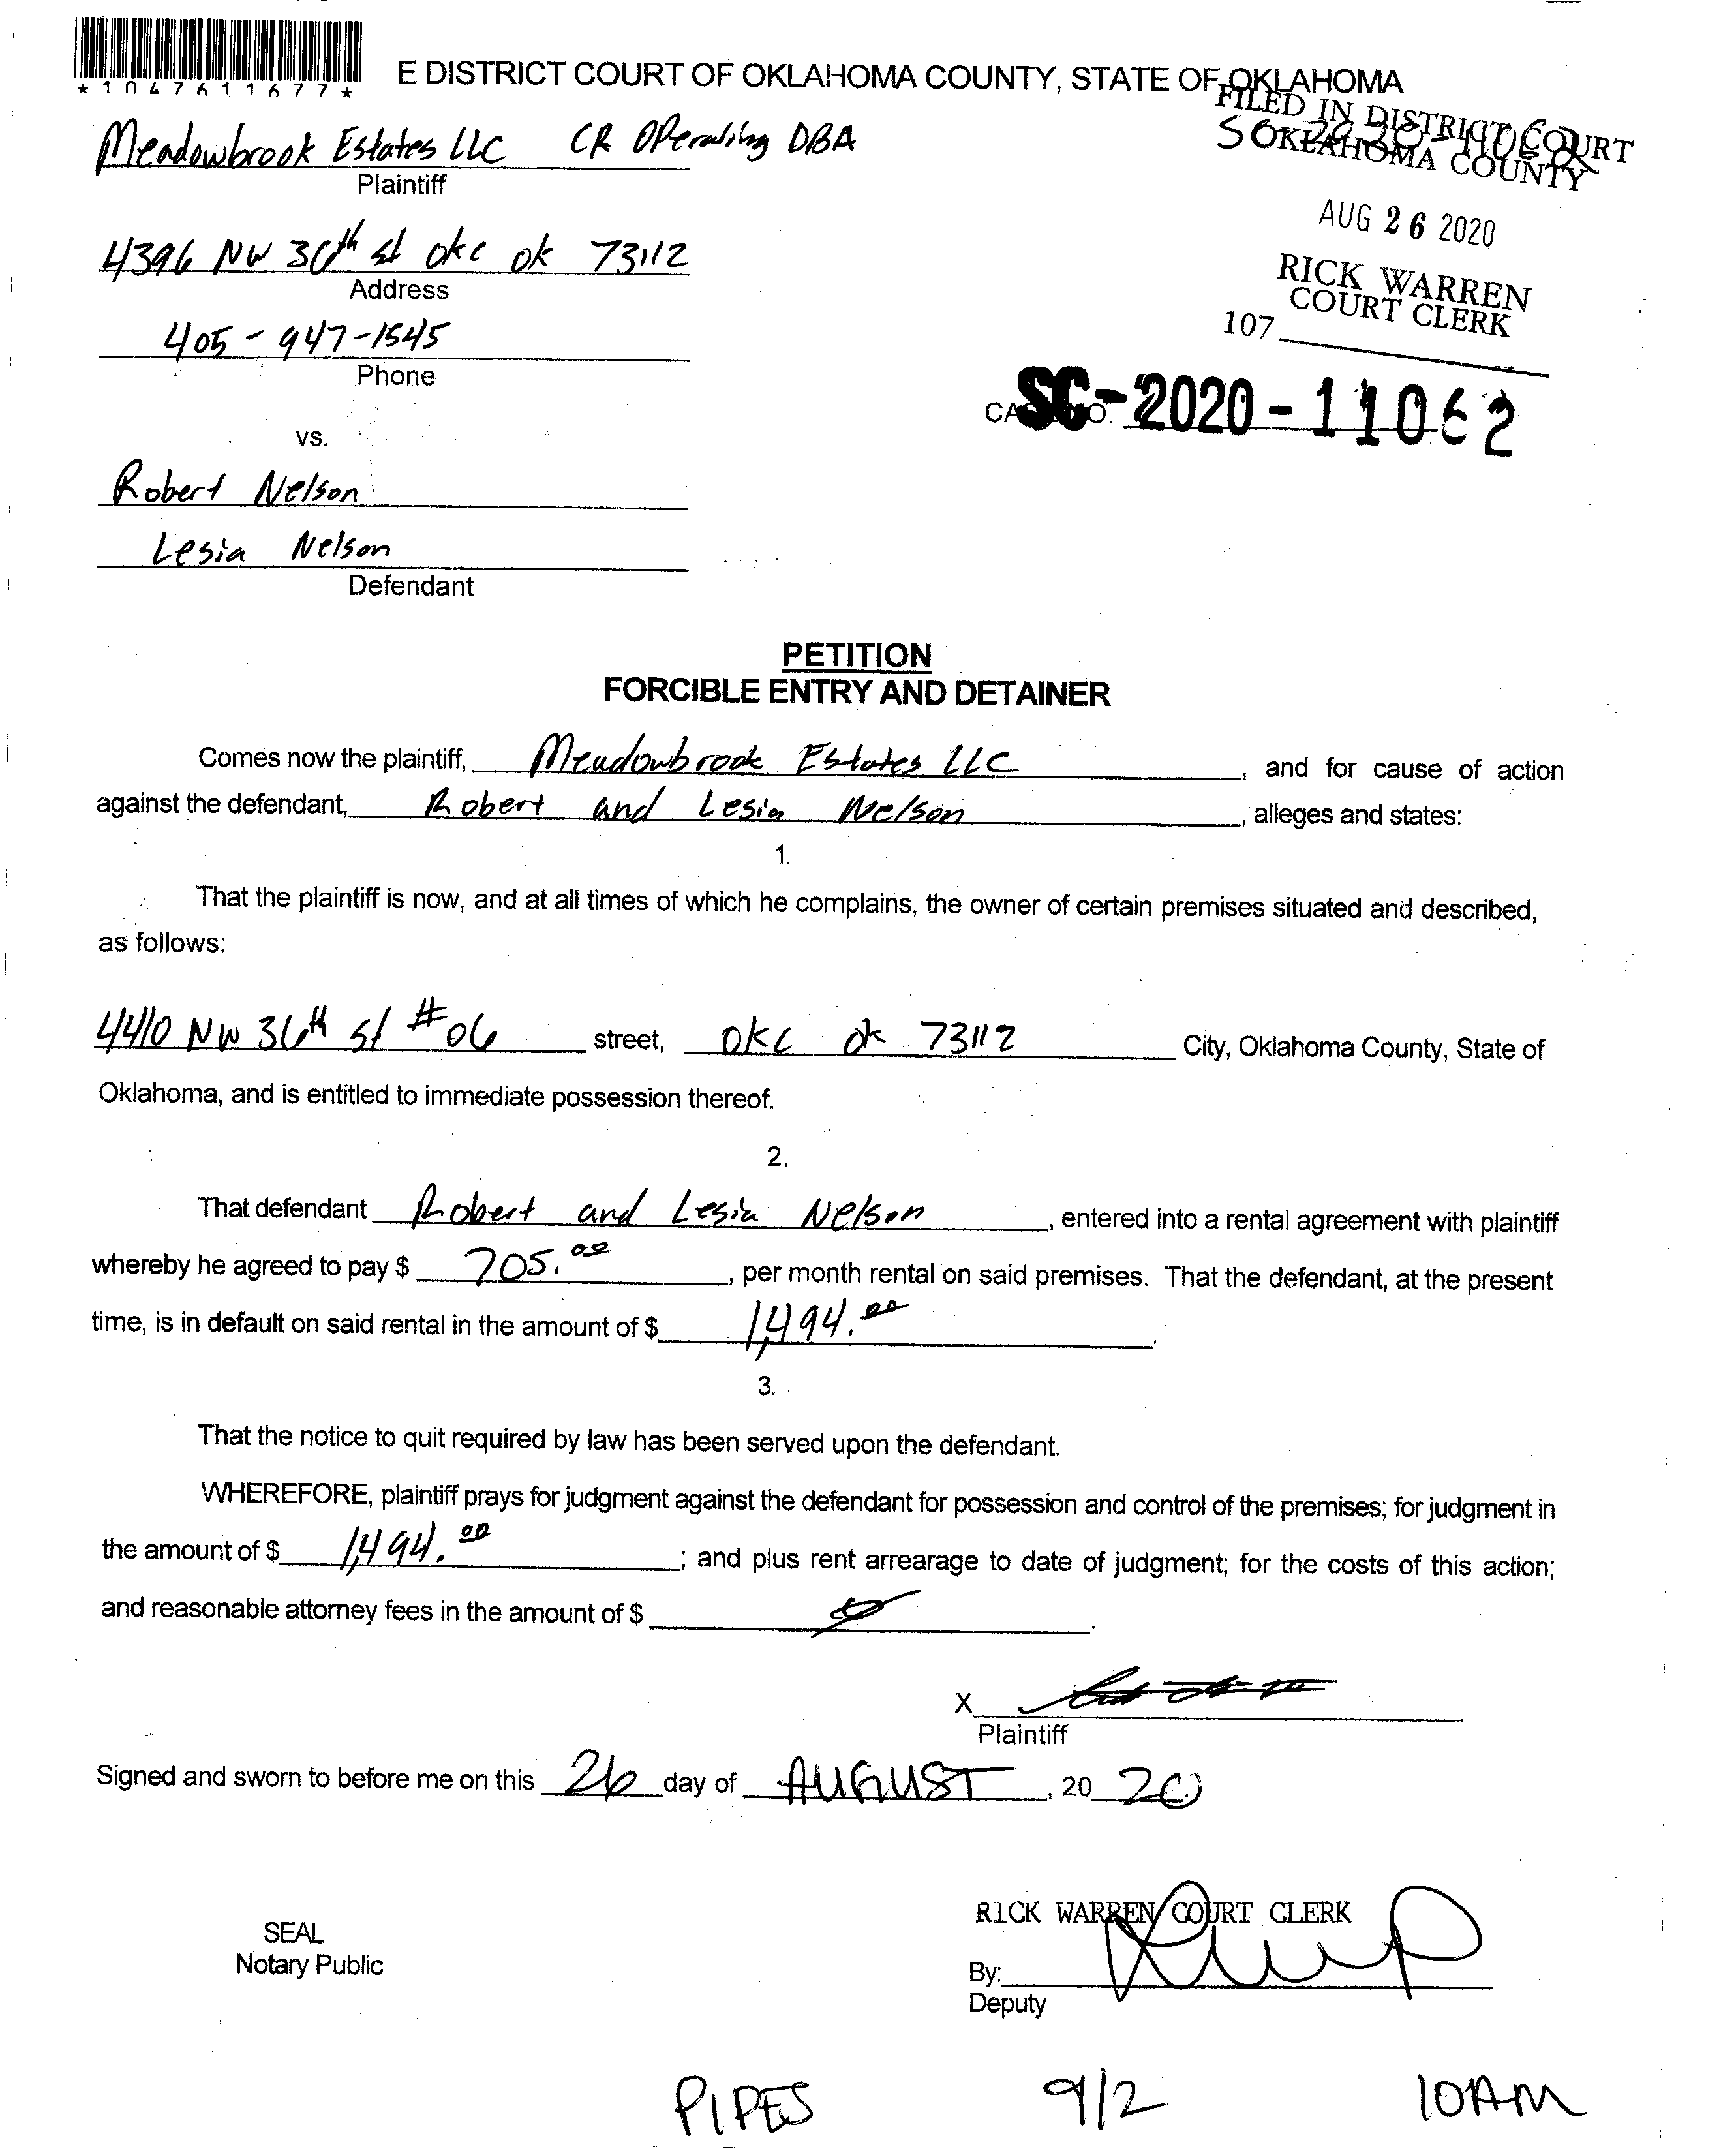 *1047611677*
E DISTRICT COURT OF OKLAHOMA COUNTY, STATE OF OKLAHOMA
FILED IN DISTRICT COURT
OKLAHOMA COUNTY
Meadowbrook Estates LLC CR Operating DBA
Plaintiff
AUG 26 2020
4396 NW 36th st okc ok 73112
Address
RICK WARREN
COURT CLERK
107
405-947-1545
Phone
SC-2020-11062
vs.
Robert Nelson
Lesia Nelson
Defendant
PETITION
FORCIBLE ENTRY AND DETAINER
Comes now the plaintiff, Meadowbrook Estates LLC, and for cause of action
against the defendant, Robert and Lesia Nelson, alleges and states:
1.
That the plaintiff is now, and at all times of which he complains, the owner of certain premises situated and described,
as follows:
4410 NW 36th st #06 street, OKC ok 73112 City, Oklahoma County, State of
Oklahoma, and is entitled to immediate possession thereof.
2.
That defendant Robert and Lesia Nelson, entered into a rental agreement with plaintiff
whereby he agreed to pay $ 705.00, per month rental on said premises. That the defendant, at the present
time, is in default on said rental in the amount of $ 1,494.00.
3.
That the notice to quit required by law has been served upon the defendant.
WHEREFORE, plaintiff prays for judgment against the defendant for possession and control of the premises; for judgment in
the amount of $ 1,494.00; and plus rent arrearage to date of judgment; for the costs of this action;
and reasonable attorney fees in the amount of $ 0.
X
Plaintiff
Signed and sworn to before me on this 26 day of AUGUST, 2020
RICK WARREN COURT CLERK
SEAL
Notary Public
By:
Deputy
PIPES 9/2 10AM